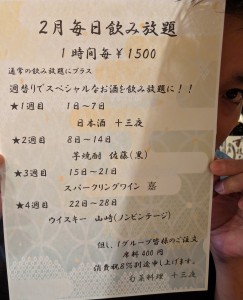 2月毎日飲み放題
1時間毎￥1500
通常の飲み放題にプラス
週替りでスペシャルなお酒を飲み放題に！！
★1週目 1日～7日
日本酒 十三夜
★2週目 8日～14日
芋焼酎 佐藤(黒)
★3週目 15日～21日
スパークリングワイン
★4週目 22日～28日
ウイスキー 山崎(ノンビンテージ)
但し、1グループ皆様のご注文
席料400円
消費税8%別途申し上げます。
旬菜料理 十三夜